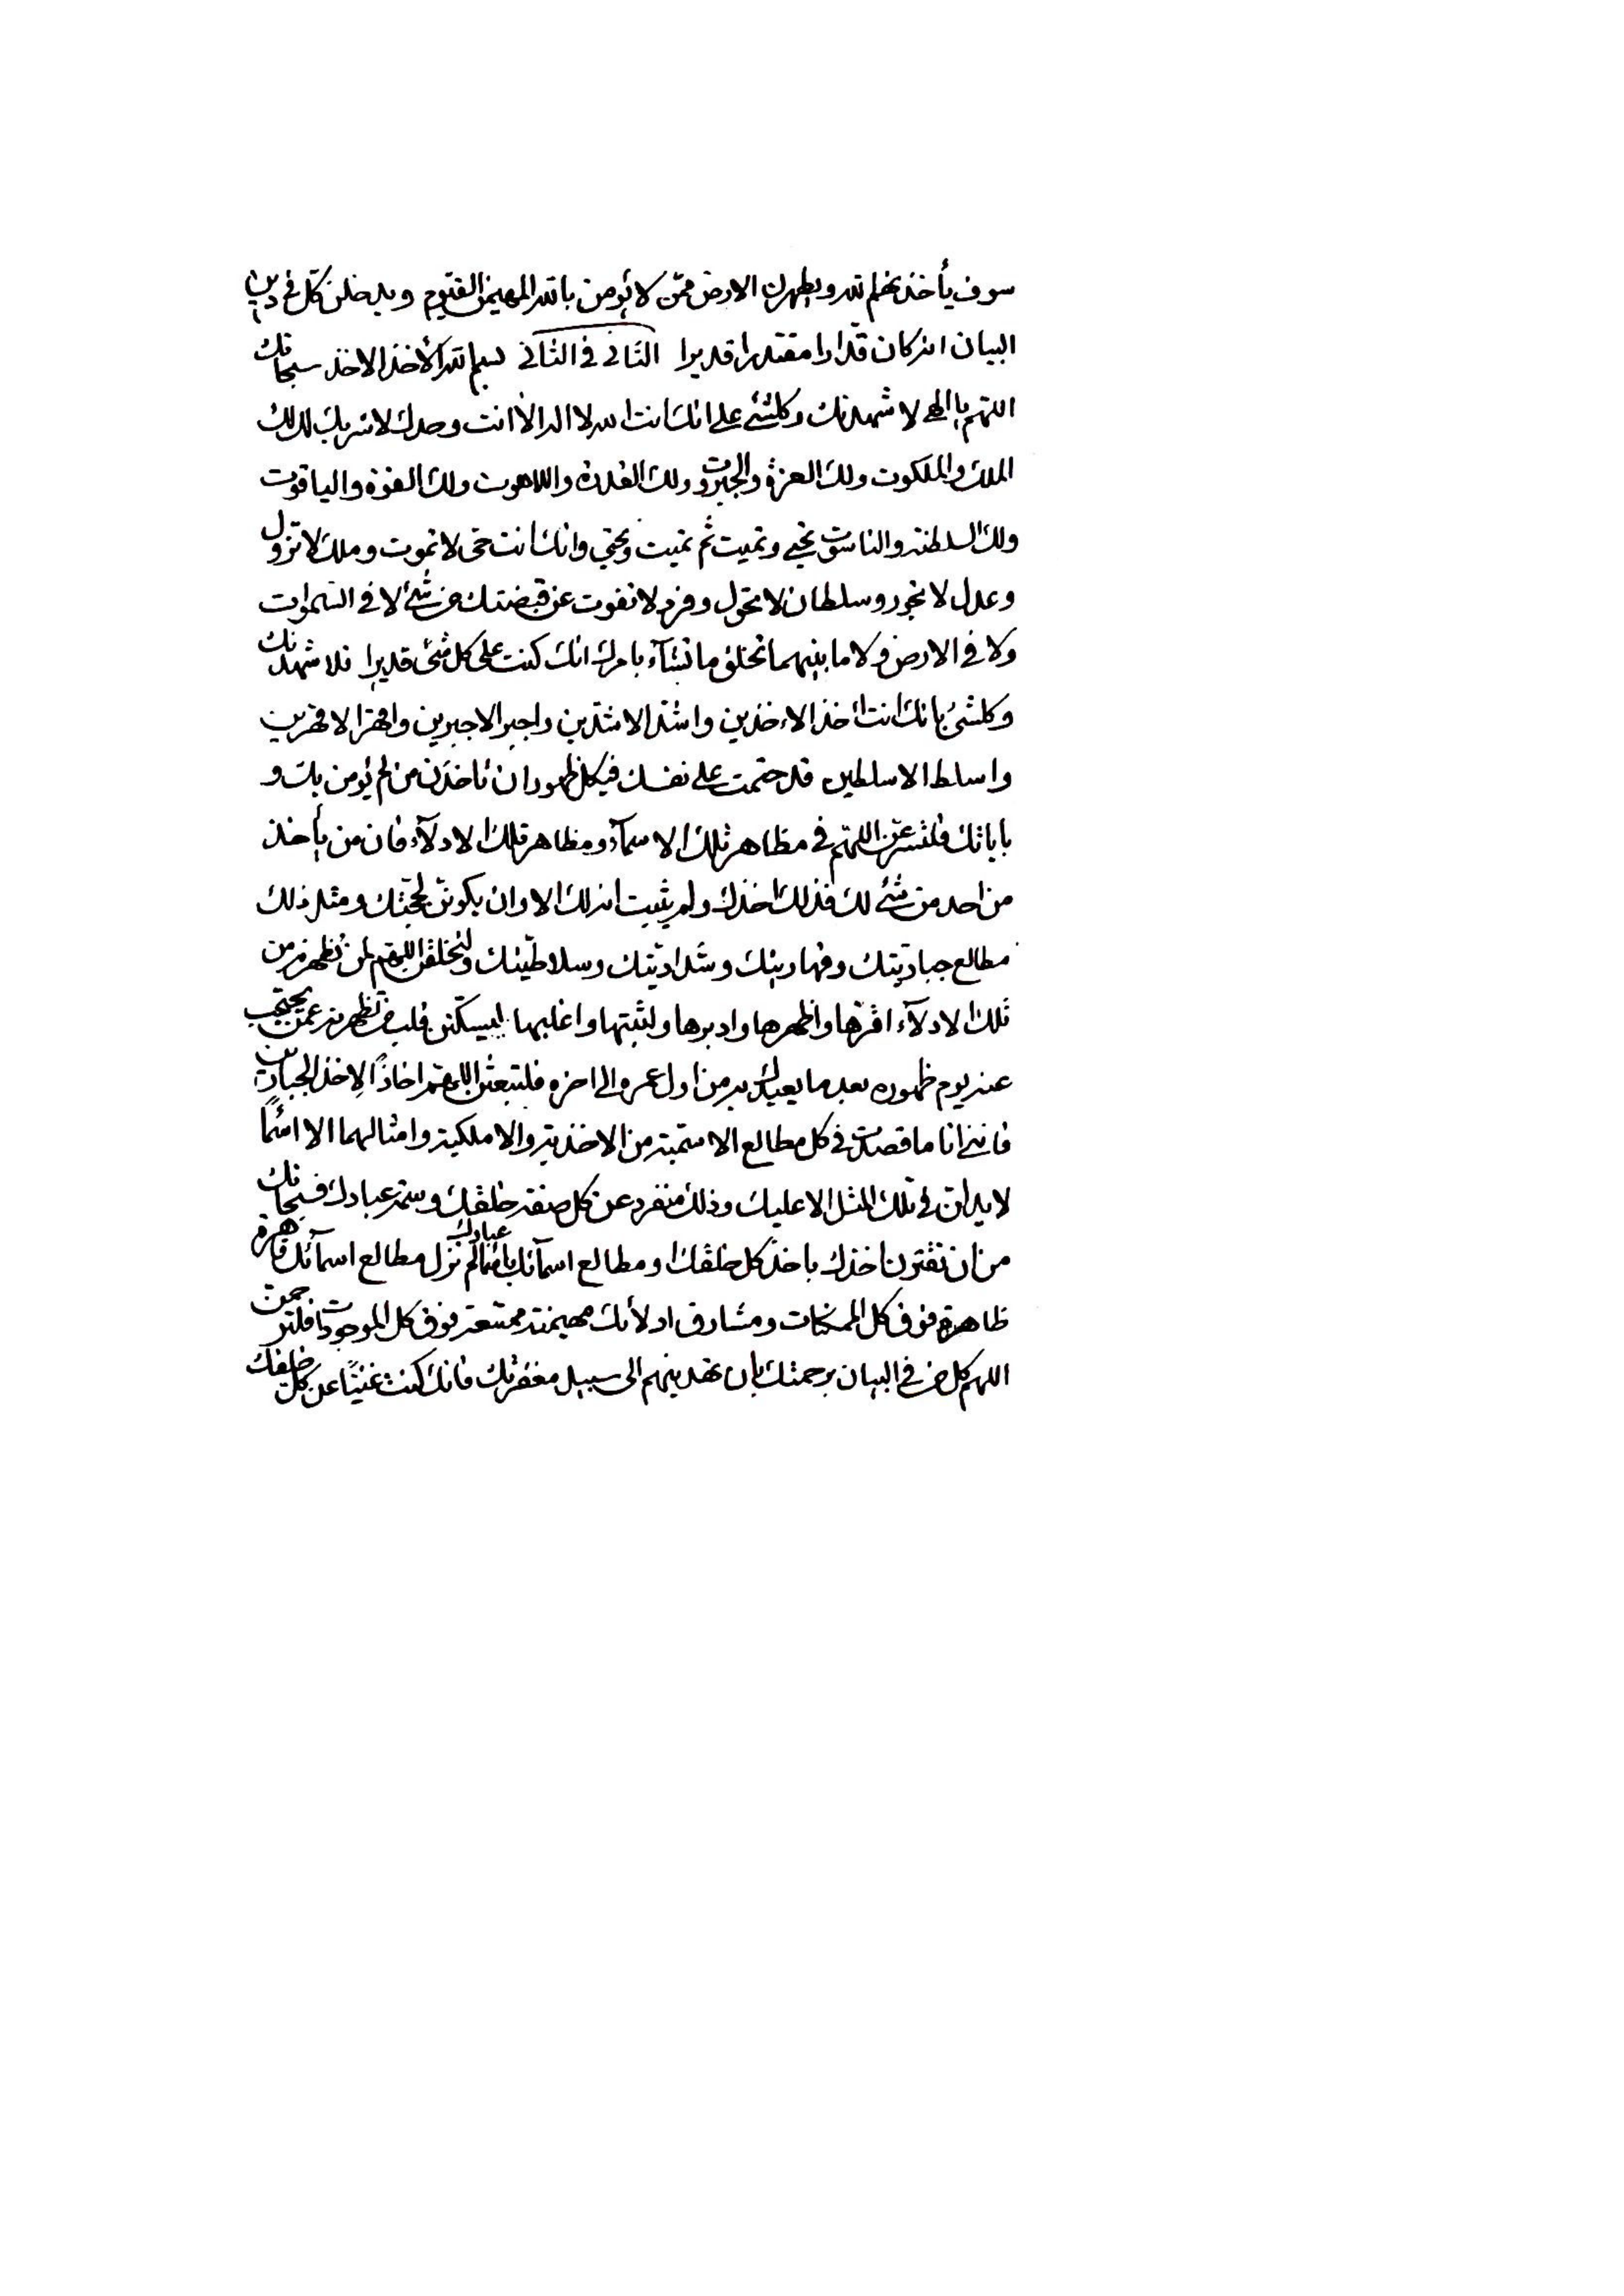 سوف يأخذنهم الله ويطهرن الارض ممن لا يؤمن بالله المهيمن القيوم ويدخلن كل في دين
البيان انه كان قدارا مقتدرا قديرا الثاني في الثاني بسم الله الأخذ الاخذ سبحانك
اللهم يا الهي لاشهدنك وكلشئ على انك انت الله لا اله الا انت وحدك لا شريك لك لك
الملك والملكوت ولك العزة والجبروت ولك القدرة واللاهوت ولك القوة والياقوت
ولك السلطنة والناسوت تحيي وتميت ثم تميت وتحيي وانك انت حي لا تموت وملك لا تزول
وعدل لا تجور وسلطان لا تحول وفرد لا تفوت عن قبضتك من شئ لا في السموات
ولا في الارض ولا ما بينهما تخلق ما تشآء بامرك انك كنت على كل شئ قديرا فلاشهدنك
وكلشئ بانك انت اخذ الاءخذين واشد الاشدين واجبر الاجبرين واقهر الاقهرين
واسلط الاسلطين قد حتمت على نفسك فيكل ظهور ان تاخذن من لم يؤمن بك و
باياتك فلتسرعن اللهم في مظاهر تلك الاسمآء ومظاهر تلك الادلآء فان من يأخذ
من احد من شئ لك فذلك اخذك ولم يثبت انه لك الا وان يكونن لحجتك ومثل ذلك
مطالع جباريتك وقهاريتك وشداديتك وسلاطيتك ولتخلقن اللهم لمن تظهرنه من
تلك الادلآء اقهرها واظهرها وادبرها ولثبتها واغلبها ليسكنن قلب من تظهرنه عمن يحتجب
عنه يوم ظهوره بعد ما يعبدك به من اول عمره الى اخره فلتبعثن اللهم اخاذا لاخذ الجبارين
فانني انا ما قصدت في كل مطالع الاسمية من الاخذية والاملكية وامثالهما الا اسما
لا يدلن في تلك المثل الا عليك وذلك منفرد عن كل صفة خلقك وسمة عبادك فسبحانك
من ان تقترن اخذك باخذ كل خلقك او مطالع اسمآئك باسمآء عبادك لم تزل مطالع اسمآئك قاهرة
ظاهرة فوق كل الممكنات ومشارق ادلائك مهيمنة ممتنعة فوق كل الموجودات فلترحمن
اللهم كل من في البيان برحمتك بان تهدينهم الى سبيل مغفرتك فانك كنت غنيا عن كل خلقك